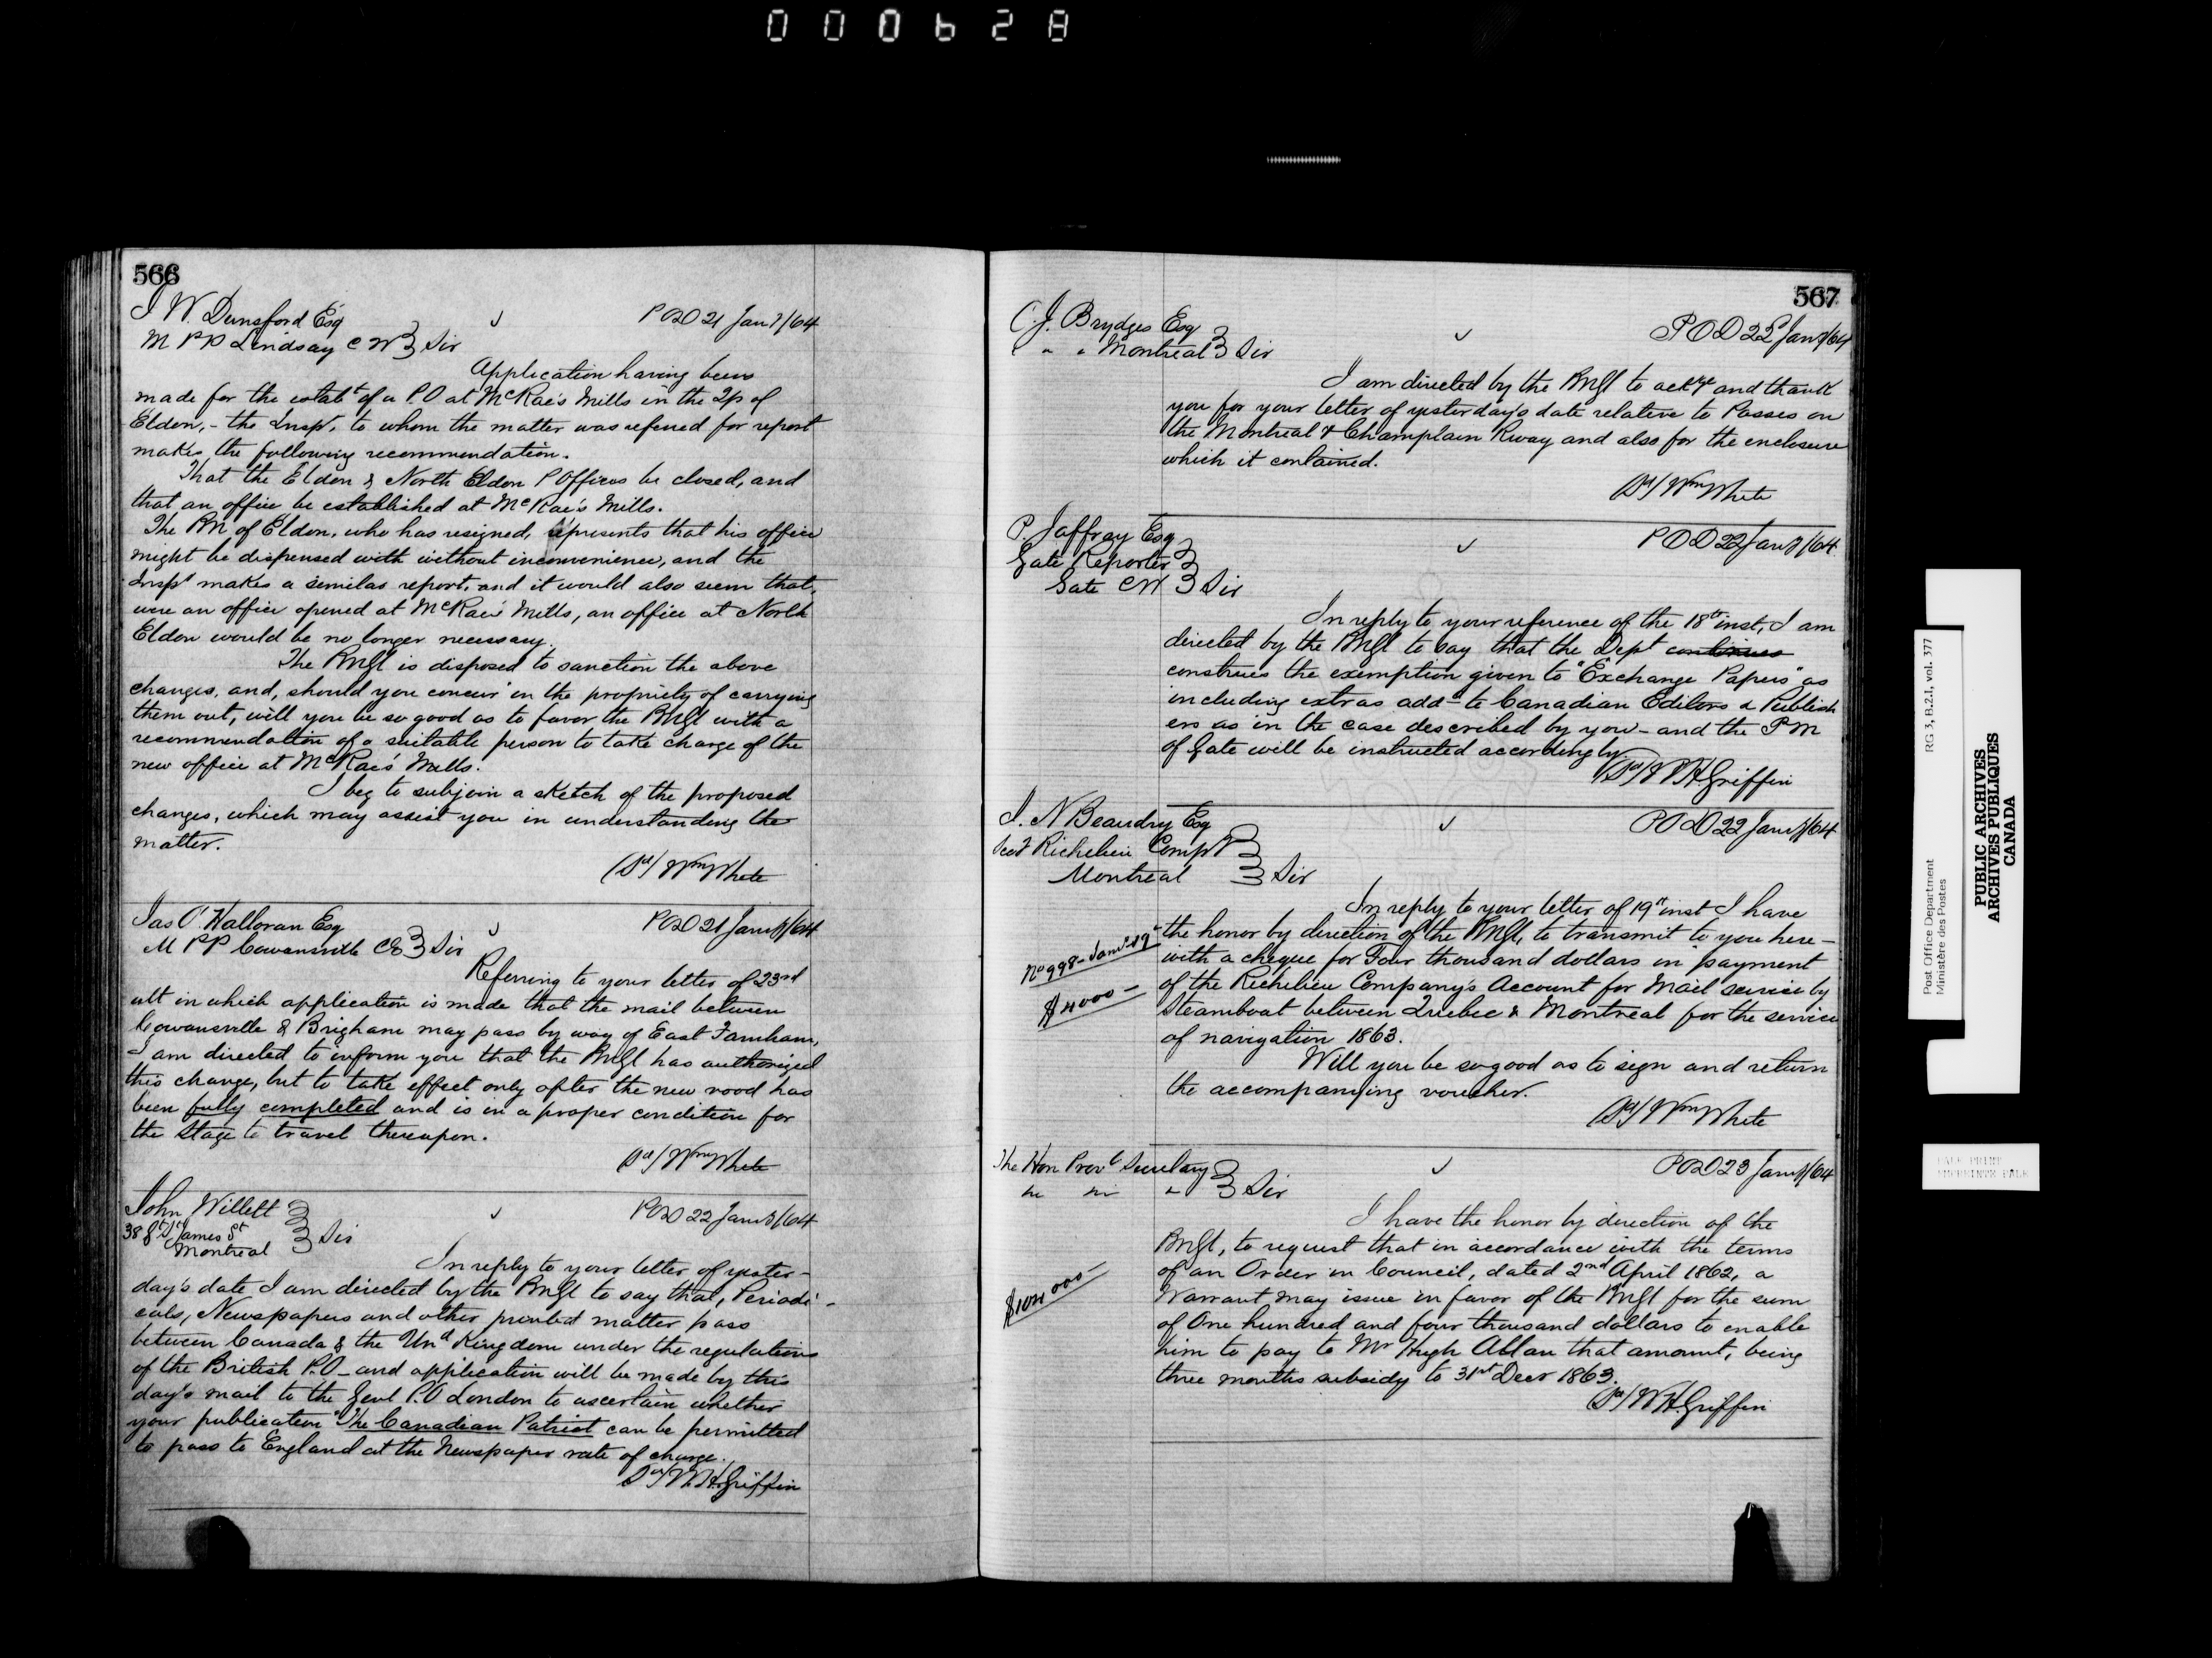 000628
566
J W. Dunsford Esq
P O D 21 Jany/64
M PP Lindsay C W } Sir
Application having been
made for the estabt of a P.O at McRae's Mills in the Tp of
Eldon, - the Inspr, to whom the matter was referred for report
makes the following recommendation.
That the Eldon & North Eldon P Offices be closed, and
that an office be established at McRae's Mills.
The PM of Eldon, who has resigned, represents that his office
might be dispensed with without inconvenience, and the
Inspr makes a similar report, and it would also seem that,
were an office opened at McRae's Mills, an office at North
Eldon would be no longer necessary.
The PMGl is disposed to sanction the above
changes, and, should you concur in the propriety of carrying
them out, will you be so good as to favor the PMGl with a
recommendation of a suitable person to take charge of the
new office at McRae's Mills.
I beg to subjoin a sketch of the proposed
changes, which may assist you in understanding the
matter.
(Sd/ Wm White
Jas O'Halloran Esq
P O D 21 Jany/64
M PP Cowansville CE } Sir
Referring to your letter of 23rd
ult in which application is made that the mail between
Cowansville & Brigham may pass by way of East Farnham,
I am directed to inform you that the PMGl has authorized
this change, but to take effect only after the new road has
been fully completed and is in a proper condition for
the Stage to travel thereupon.
Sd/ Wm White
John Willett
P O D 22 Jany/64
38 Gt St James St } Sir
Montreal
In reply to your letter of yester-
day's date I am directed by the PMGl to say that, Periodi-
cals, Newspapers and other printed matter pass
between Canada & the Und Kingdom under the regulations
of the British P.O - and application will be made by this
day's mail to the Genl P.O London to ascertain whether
your publication "The Canadian Patriot can be permitted
to pass to England at the Newspaper rate of charge.
Sd/ W.H. Griffin
567
C. J. Brydges Esq
P O D 22 Jany/64
" " " Montreal } Sir
I am directed by the PMGl to ackge and thank
you for your letter of yesterday's date relative to Passes on
the Montreal & Champlain Rway and also for the enclosure
which it contained.
Sd/ Wm White
P. Jaffray Esq
P O D 22 Jany/64
Galt Reporter
Galt CW } Sir
In reply to your reference of the 18th inst, I am
directed by the PMGl to say that the Dept continues
construes the exemption given to "Exchange Papers" as
including extras addd to Canadian Editors & Publish
ers as in the case described by you - and the PM
of Galt will be instructed accordingly
(Sd/ W H Griffin
J. N Beaudry Esq
P O D 22 Jany/64
Secy Richelieu Compy
Montreal } Sir
In reply to your letter of 19th inst I have
the honor by direction of the PMGl, to transmit to you here-
with a cheque for Four thousand dollars in payment
of the Richelieu Company's Account for Mail service by
Steamboat between Quebec & Montreal for the service
of navigation 1863.
No 998 - Jany 19
$4000 -
Will you be so good as to sign and return
the accompanying voucher.
Sd/ Wm White
The Hon Provl Secretary
P O D 23 Jany/64
} Sir
I have the honor by direction of the
PMGl, to request that in accordance with the terms
of an Order in Council, dated 2nd April 1862, a
Warrant may issue in favor of the PMGl for the sum
of One hundred and four thousand dollars to enable
him to pay to Mr Hugh Allan that amount, being
three months subsidy to 31st Decr 1863.
$104000 -
Sd/ W H. Griffin
Post Office Department
Ministère des Postes
RG 3, B.2.I, vol. 377
PUBLIC ARCHIVES
ARCHIVES PUBLIQUES
CANADA